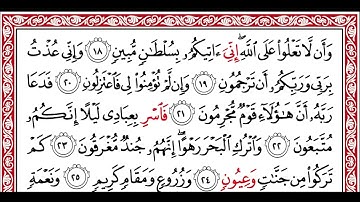 وَأَن لَّا تَعْلُوا۟ عَلَى ٱللَّهِ ۖ إِنِّىٓ ءَاتِيكُم بِسُلْطَٰنٍ مُّبِينٍ ١٨ وَإِنِّى عُذْتُ
بِرَبِّى وَرَبِّكُمْ أَن تَرْجُمُونِ ١٩ وَإِن لَّمْ تُؤْمِنُوا۟ لِى فَٱعْتَزِلُونِ ٢٠ فَدَعَا
رَبَّهُۥٓ أَنَّ هَٰٓؤُلَآءِ قَوْمٌ مُّجْرِمُونَ ٢١ فَأَسْرِ بِعِبَادِى لَيْلًا إِنَّكُم
مُّتَّبَعُونَ ٢٢ وَٱتْرُكِ ٱلْبَحْرَ رَهْوًا ۖ إِنَّهُمْ جُندٌ مُّغْرَقُونَ ٢٣ كَمْ
تَرَكُوا۟ مِن جَنَّٰتٍ وَعُيُونٍ ٢٤ وَزُرُوعٍ وَمَقَامٍ كَرِيمٍ ٢٥ وَنَعْمَةٍ